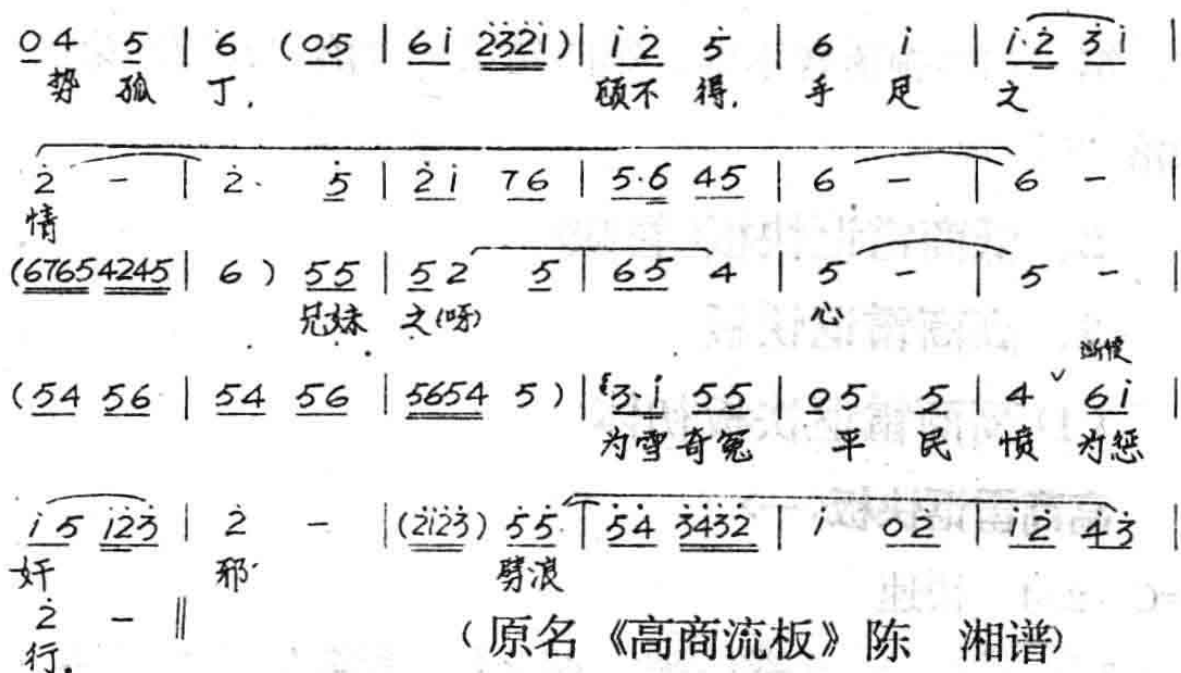 0 4 5 | 6 (05 | 6i 2̇3̇2̇i)| i 2̇ 5̇ | 6 i | i·2̇ 3̇i |
势 孤 丁, 顾不 得, 手 足 之
2̇ - | 2̇· 5̇ | 2̇i 76 | 5·6 45 | 6 - | 6 - |
情
(67654245 | 6 ) 55 | 52 5 | 65 4 | 5 - | 5 - |
兄妹 之(呀) 心
(54 56 | 54 56 | 5654 5 ) | 3·i 55 | 05 5 | 4 ∨ 6i |
为雪奇冤 平 民 愤 为惩
i5 i2̇3̇ | 2̇ - |(2̇i2̇3̇) 5̇5̇ | 5̇4̇ 3̇4̇3̇2̇ | i 02̇ | i2̇ 4̇3̇ |
奸 邪 劈浪
2̇ - ‖
行. (原名《高商流板》陈 湘谱)